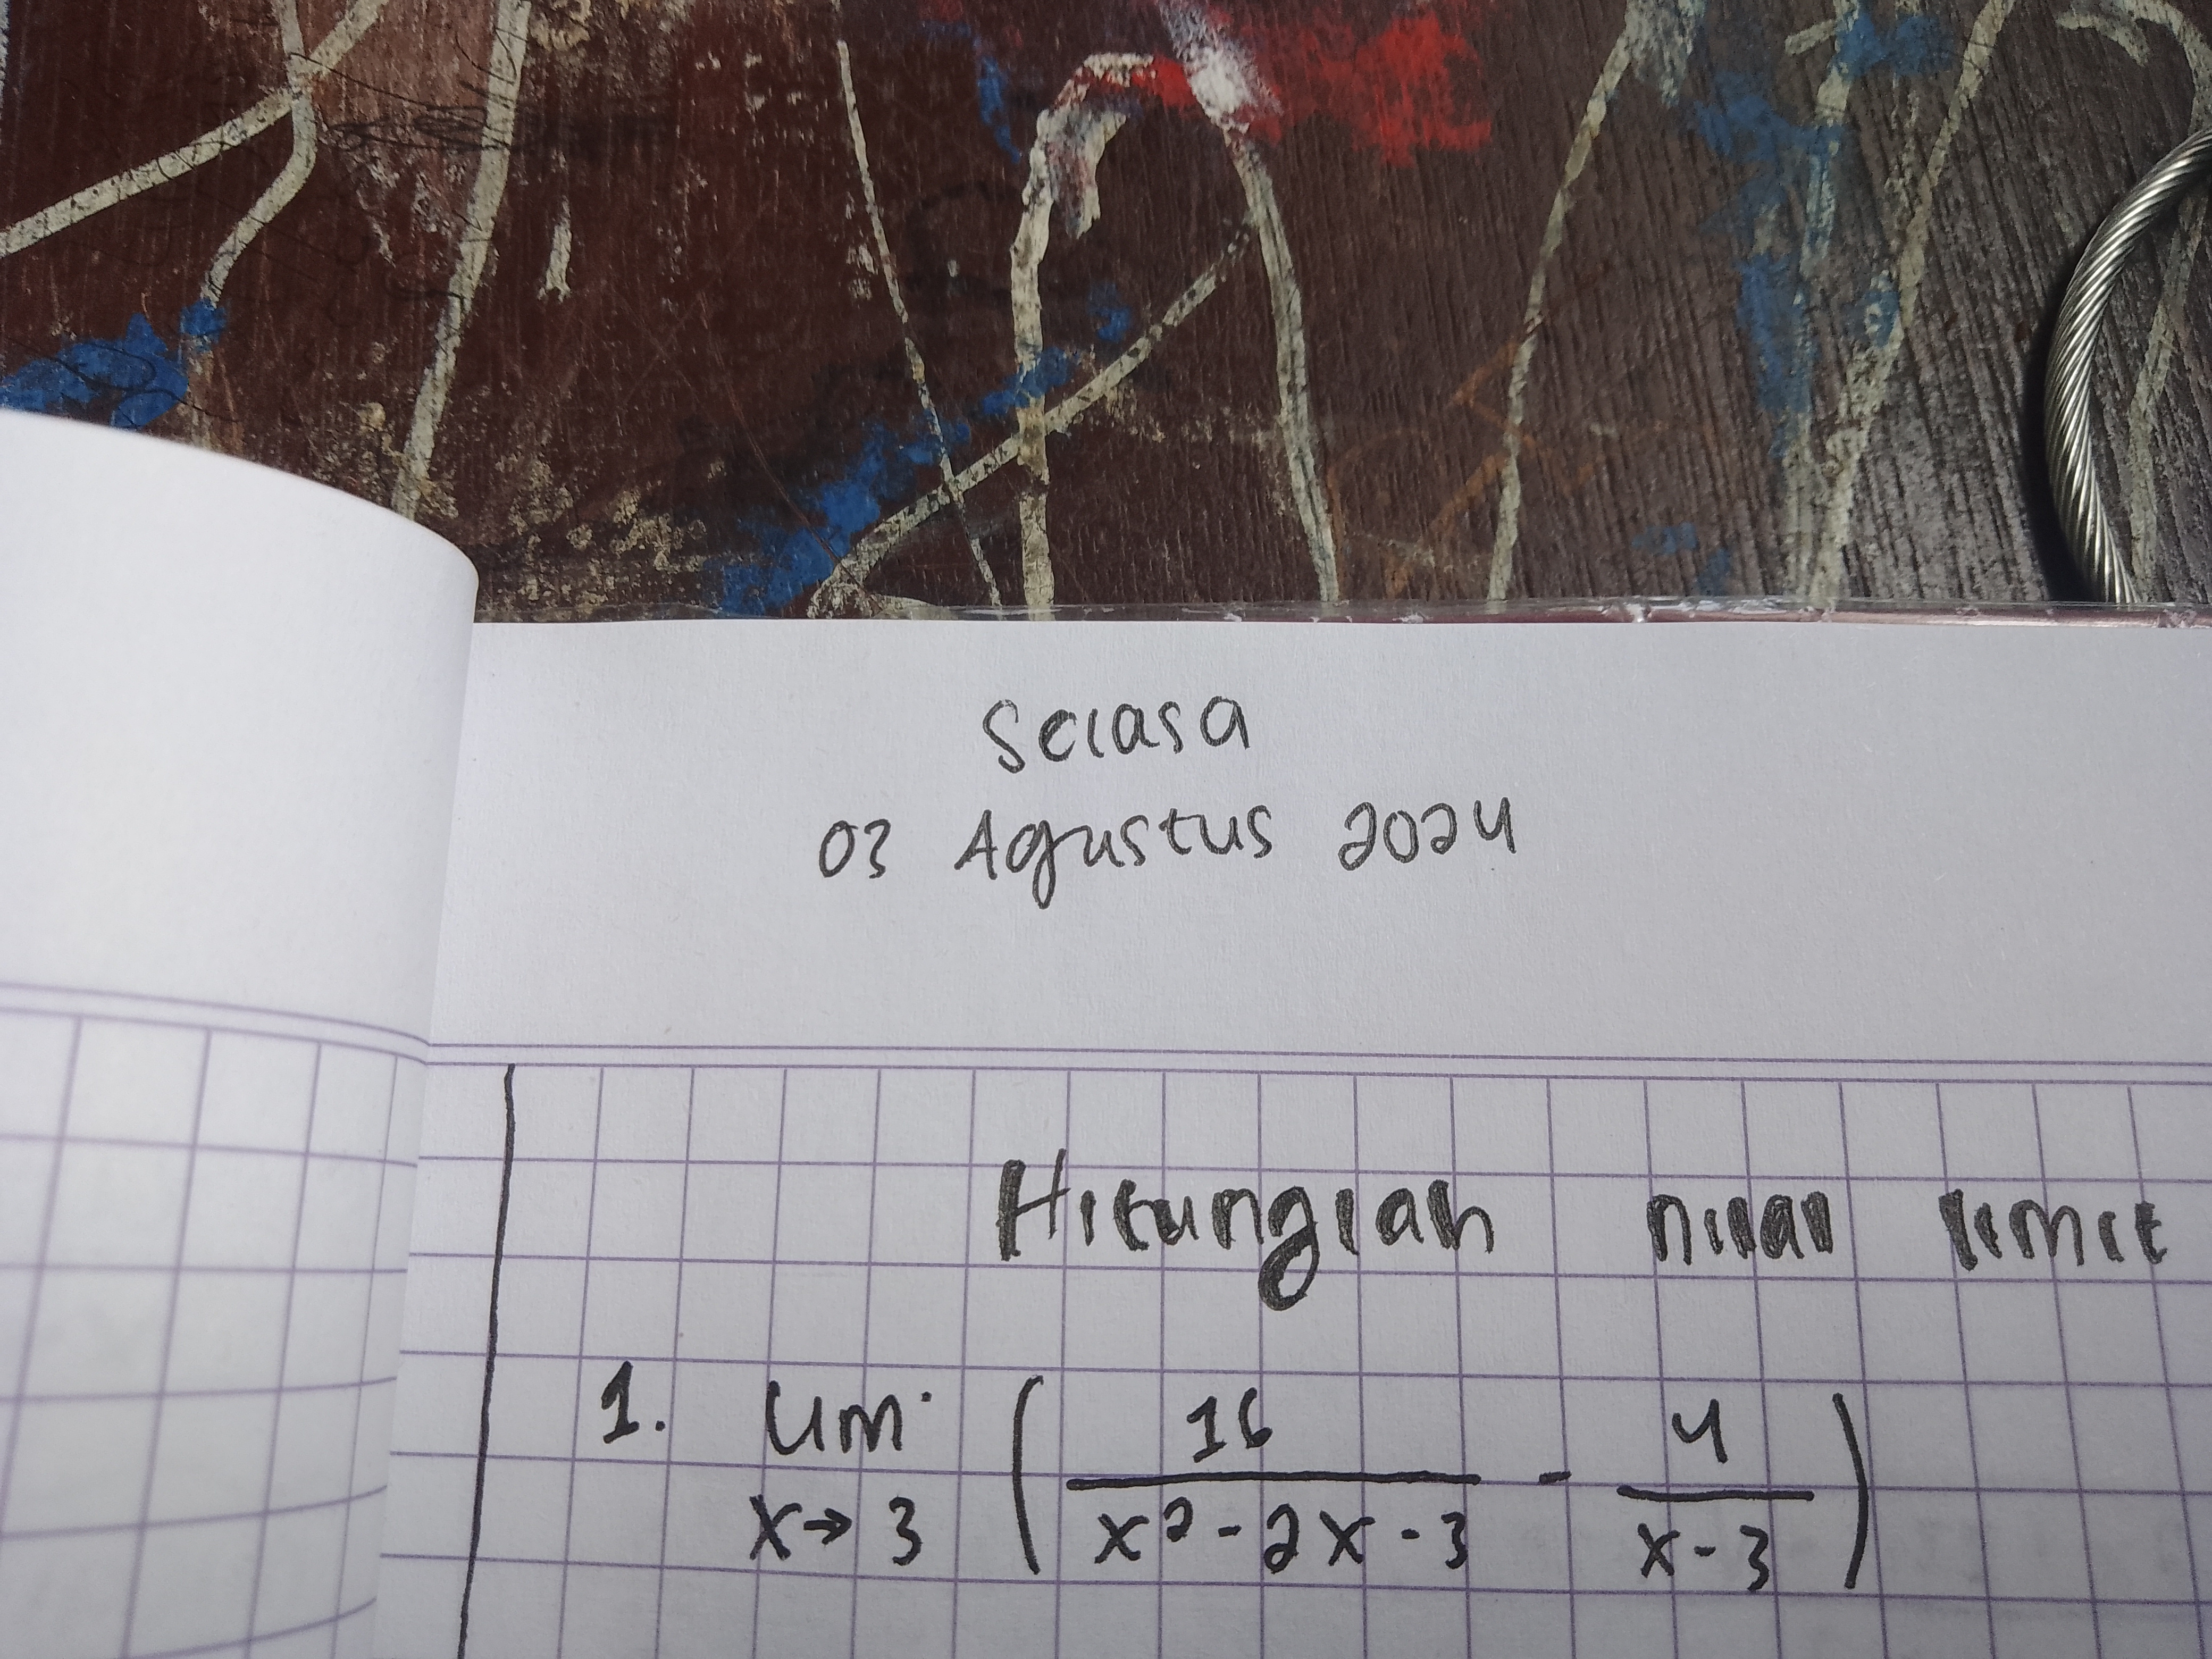 Selasa
03 Agustus 2024
Hitunglah nilai limit
1. lim (16/(x²-2x-3) - 4/(x-3))
x→3